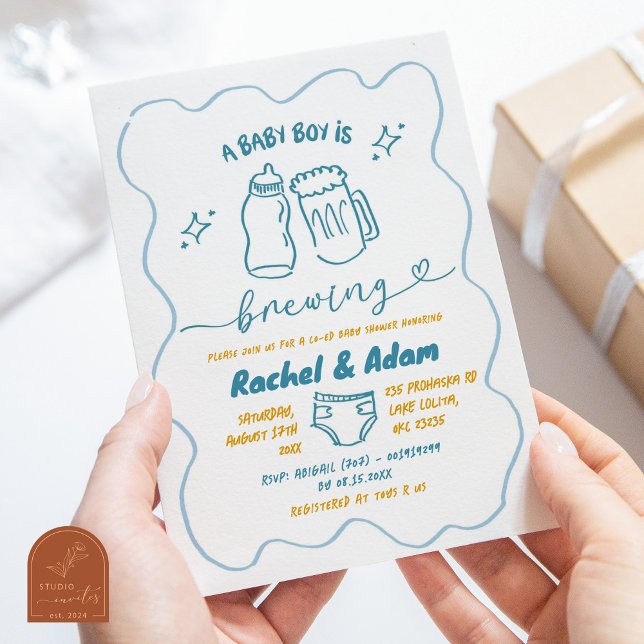 A BABY BOY IS
brewing
PLEASE JOIN US FOR A CO-ED BABY SHOWER HONORING
Rachel & Adam
SATURDAY,
AUGUST 17TH
20XX
235 PROHASKA RD
LAKE LOLITA,
OKC 23235
RSVP: ABIGAIL (707) - 001919299
BY 08.15.20XX
REGISTERED AT TOYS R US
STUDIO
invites
est. 2024